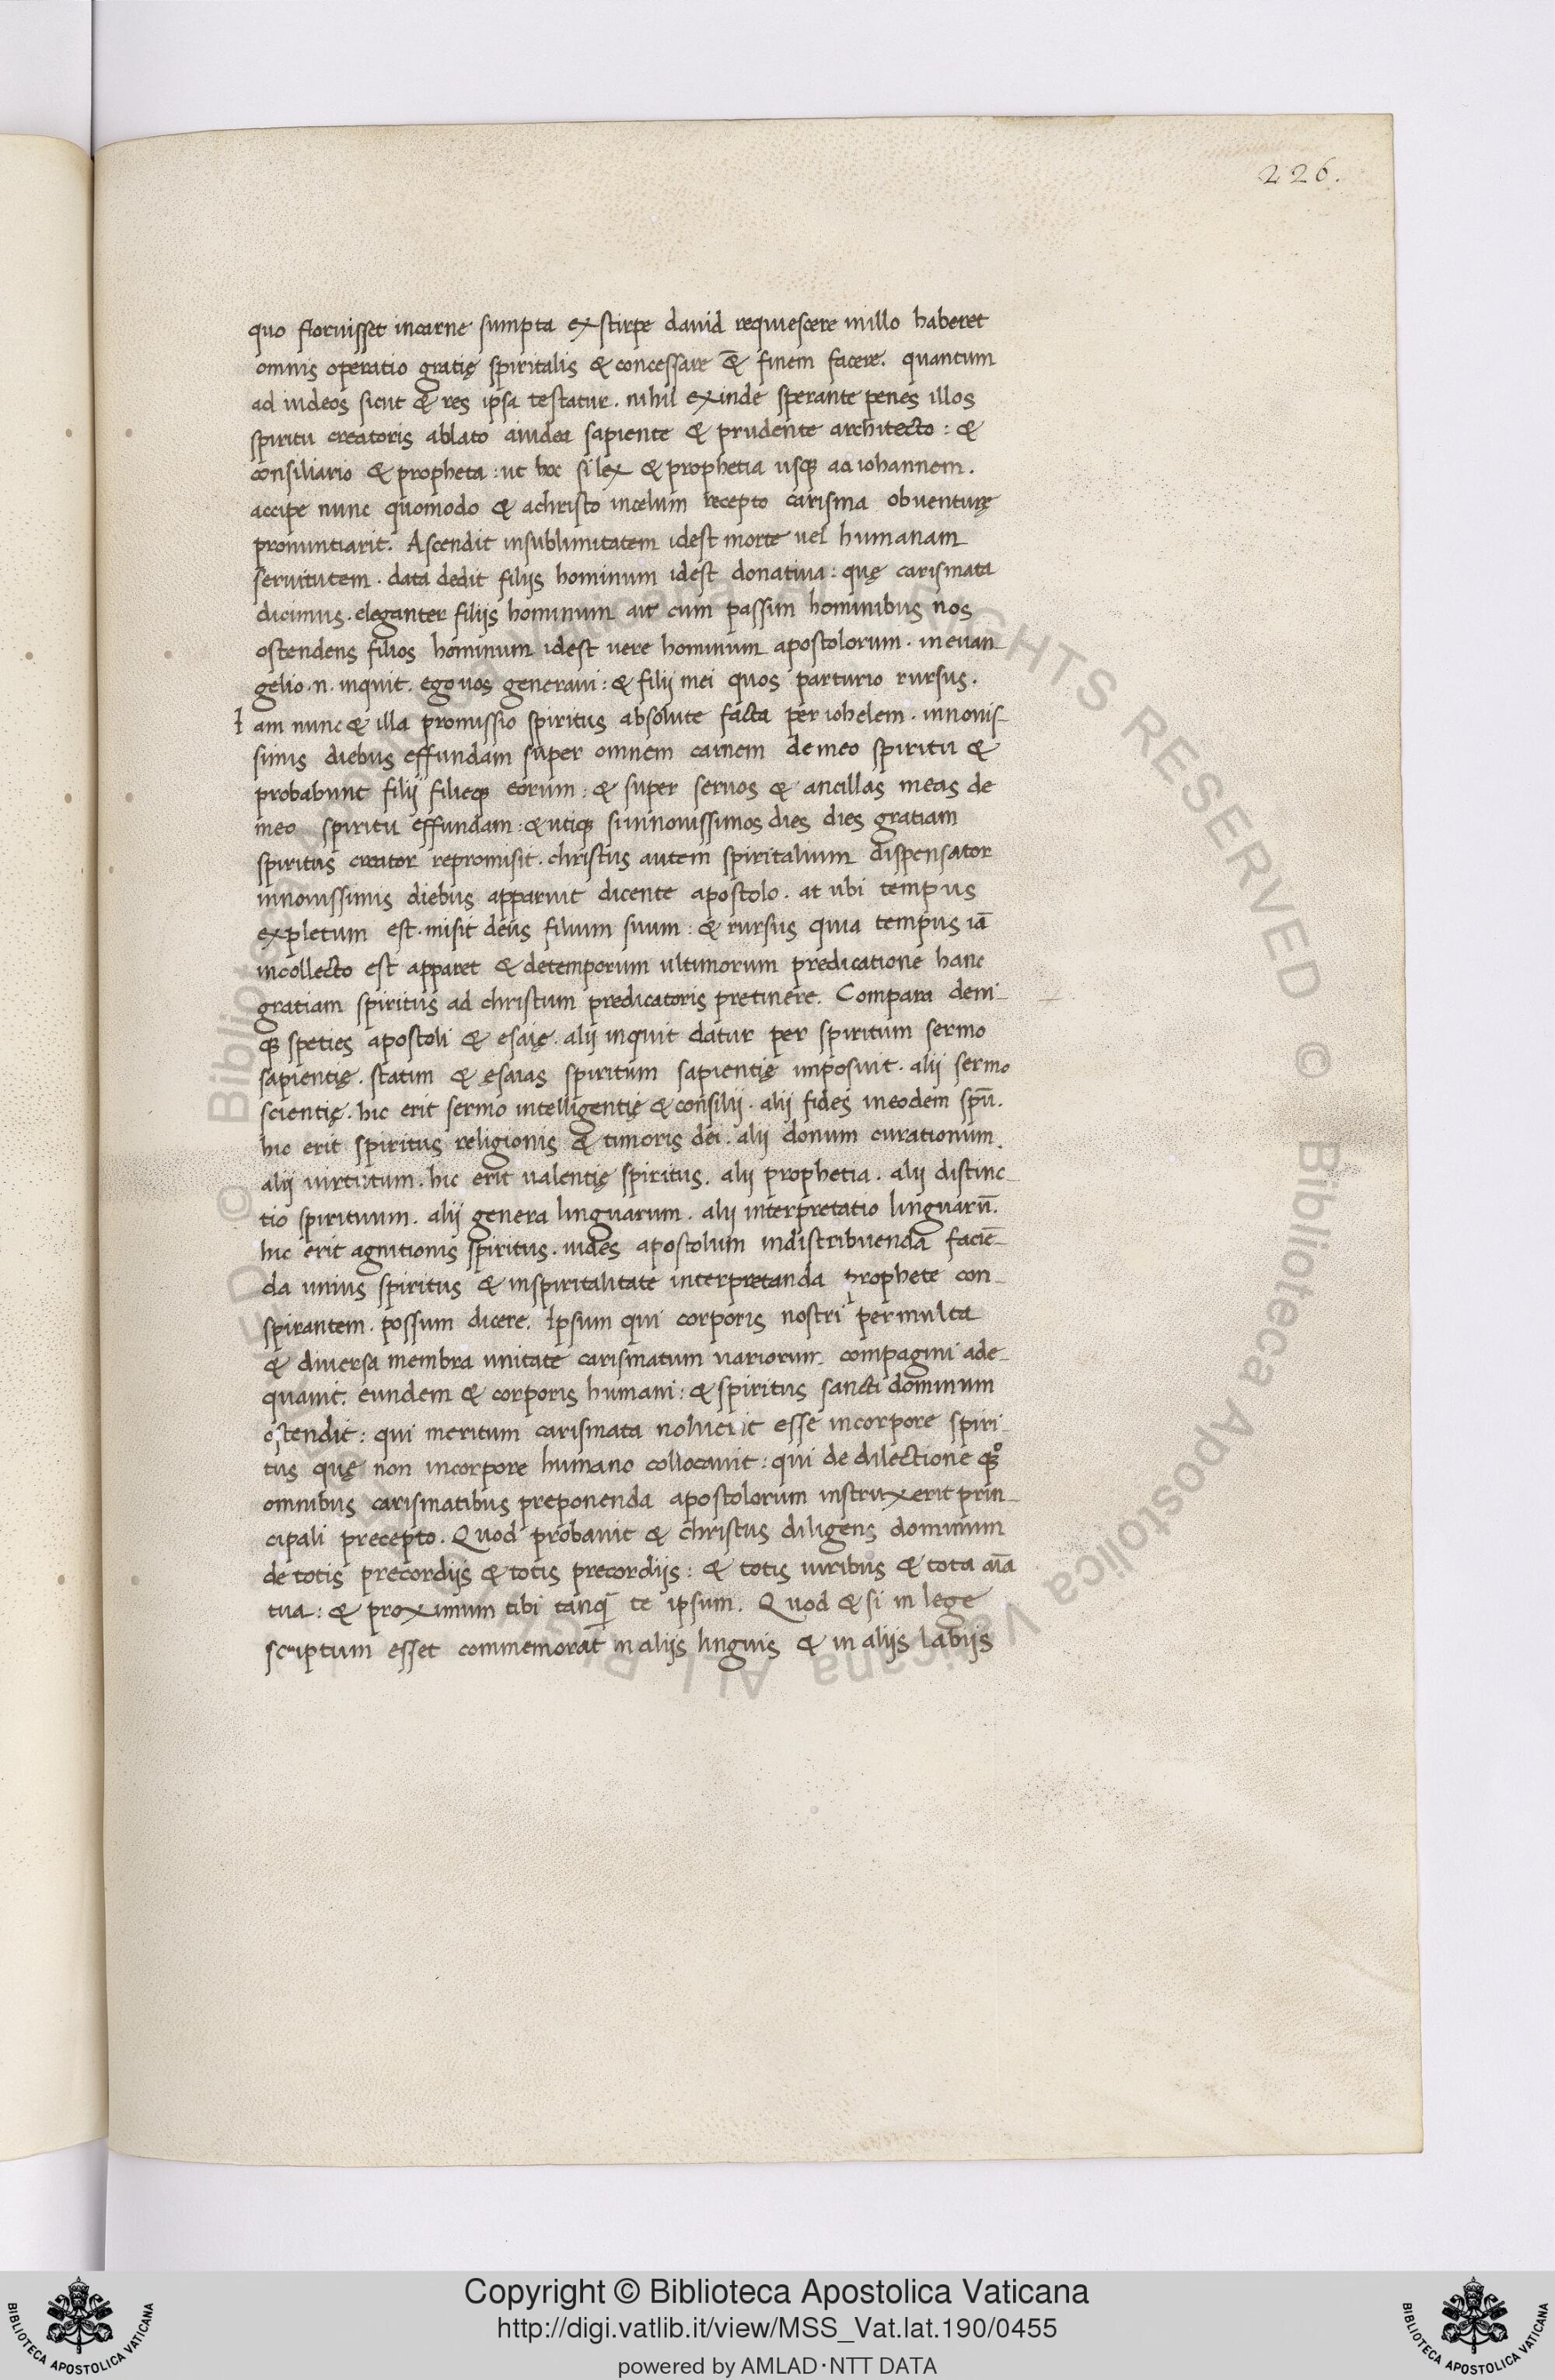 226.
quo floruisset incarne sumpta exstirpe david requiescere inillo haberet
omnis operatio gratię spiritalis & concessare & finem facere. quantum
ad iudeos sicut & res ipsa testatur. nihil exinde sperante penes illos
spiritu creatoris ablato aiudea sapiente & prudente architecto: &
consiliario & propheta: ut hoc si lex & prophetia usq; ad iohannem.
accipe nunc quomodo & achristo incelum recepto carisma obventurę
pronuntiarit. Ascendit insublimitatem idest morte vel humanam
servitutem. data dedit filijs hominum idest donativa: quę carismata
dicimus. eleganter filijs hominum ait cum passim hominibus nos
ostendens filios hominum idest vere hominum apostolorum. inevan-
gelio .n. inquit. ego vos generavi: & filij mei quos parturio rursus.
Iam nunc & illa promissio spiritus absolute facta per iohelem. innovis-
simis diebus effundam super omnem carnem de meo spiritu &
probabunt filij filieq; eorum: & super servos & ancillas meas de
meo spiritu effundam: & utiq; si innovissimos dies dies gratiam
spiritus creator repromisit. christus autem spiritalium dispensator
innovissimis diebus apparuit dicente apostolo. at ubi tempus
expletum est. misit deus filium suum: & rursus quia tempus iā
incollecto est apparet & detemporum ultimorum predicatione hanc
gratiam spiritus ad christum predicatoris pretinere. Compara deni-
q; speties apostoli & esaię. alij inquit datur per spiritum sermo
sapientię. statim & ęsaias spiritum sapientię imposuit. alij sermo
scientię. hic erit sermo intelligentię & consilij. alij fides ineodem spū.
hic erit spiritus religionis & timoris dei. alij donum curationum.
alij virtutum. hic erit valentię spiritus. alij prophetia. alij distinc-
tio spirituum. alij genera linguarum. alij interpretatio linguarū.
hic erit agnitionis spiritus. vides apostolum indistribuenda faciē-
da unius spiritus & inspiritalitate interpretanda prophete con-
spirantem. possum dicere. Ipsum qui corporis nostri per multa
& diversa membra unitate carismatum variorum compagini ade-
quavit. eundem & corporis humani: & spiritus sancti dominum
ostendit: qui meritum carismata noluerit esse incorpore spiri-
tus quę non incorpore humano collocavit: qui de dilectione q̊;
omnibus carismatibus preponenda apostolorum instruxerit prin-
cipali precepto. Quod probavit & christus diligens dominum
de totis precordijs & totis precordijs: & totis viribus & tota aīa
tua: & proximum tibi tanq̄ te ipsum. Quod & si in lege
scriptum esset commemorat in alijs linguis & in alijs labijs
© Biblioteca Apostolica Vaticana ALL RIGHTS RESERVED
Copyright © Biblioteca Apostolica Vaticana
http://digi.vatlib.it/view/MSS_Vat.lat.190/0455
powered by AMLAD·NTT DATA
BIBLIOTECA APOSTOLICA VATICANA
BIBLIOTECA APOSTOLICA VATICANA